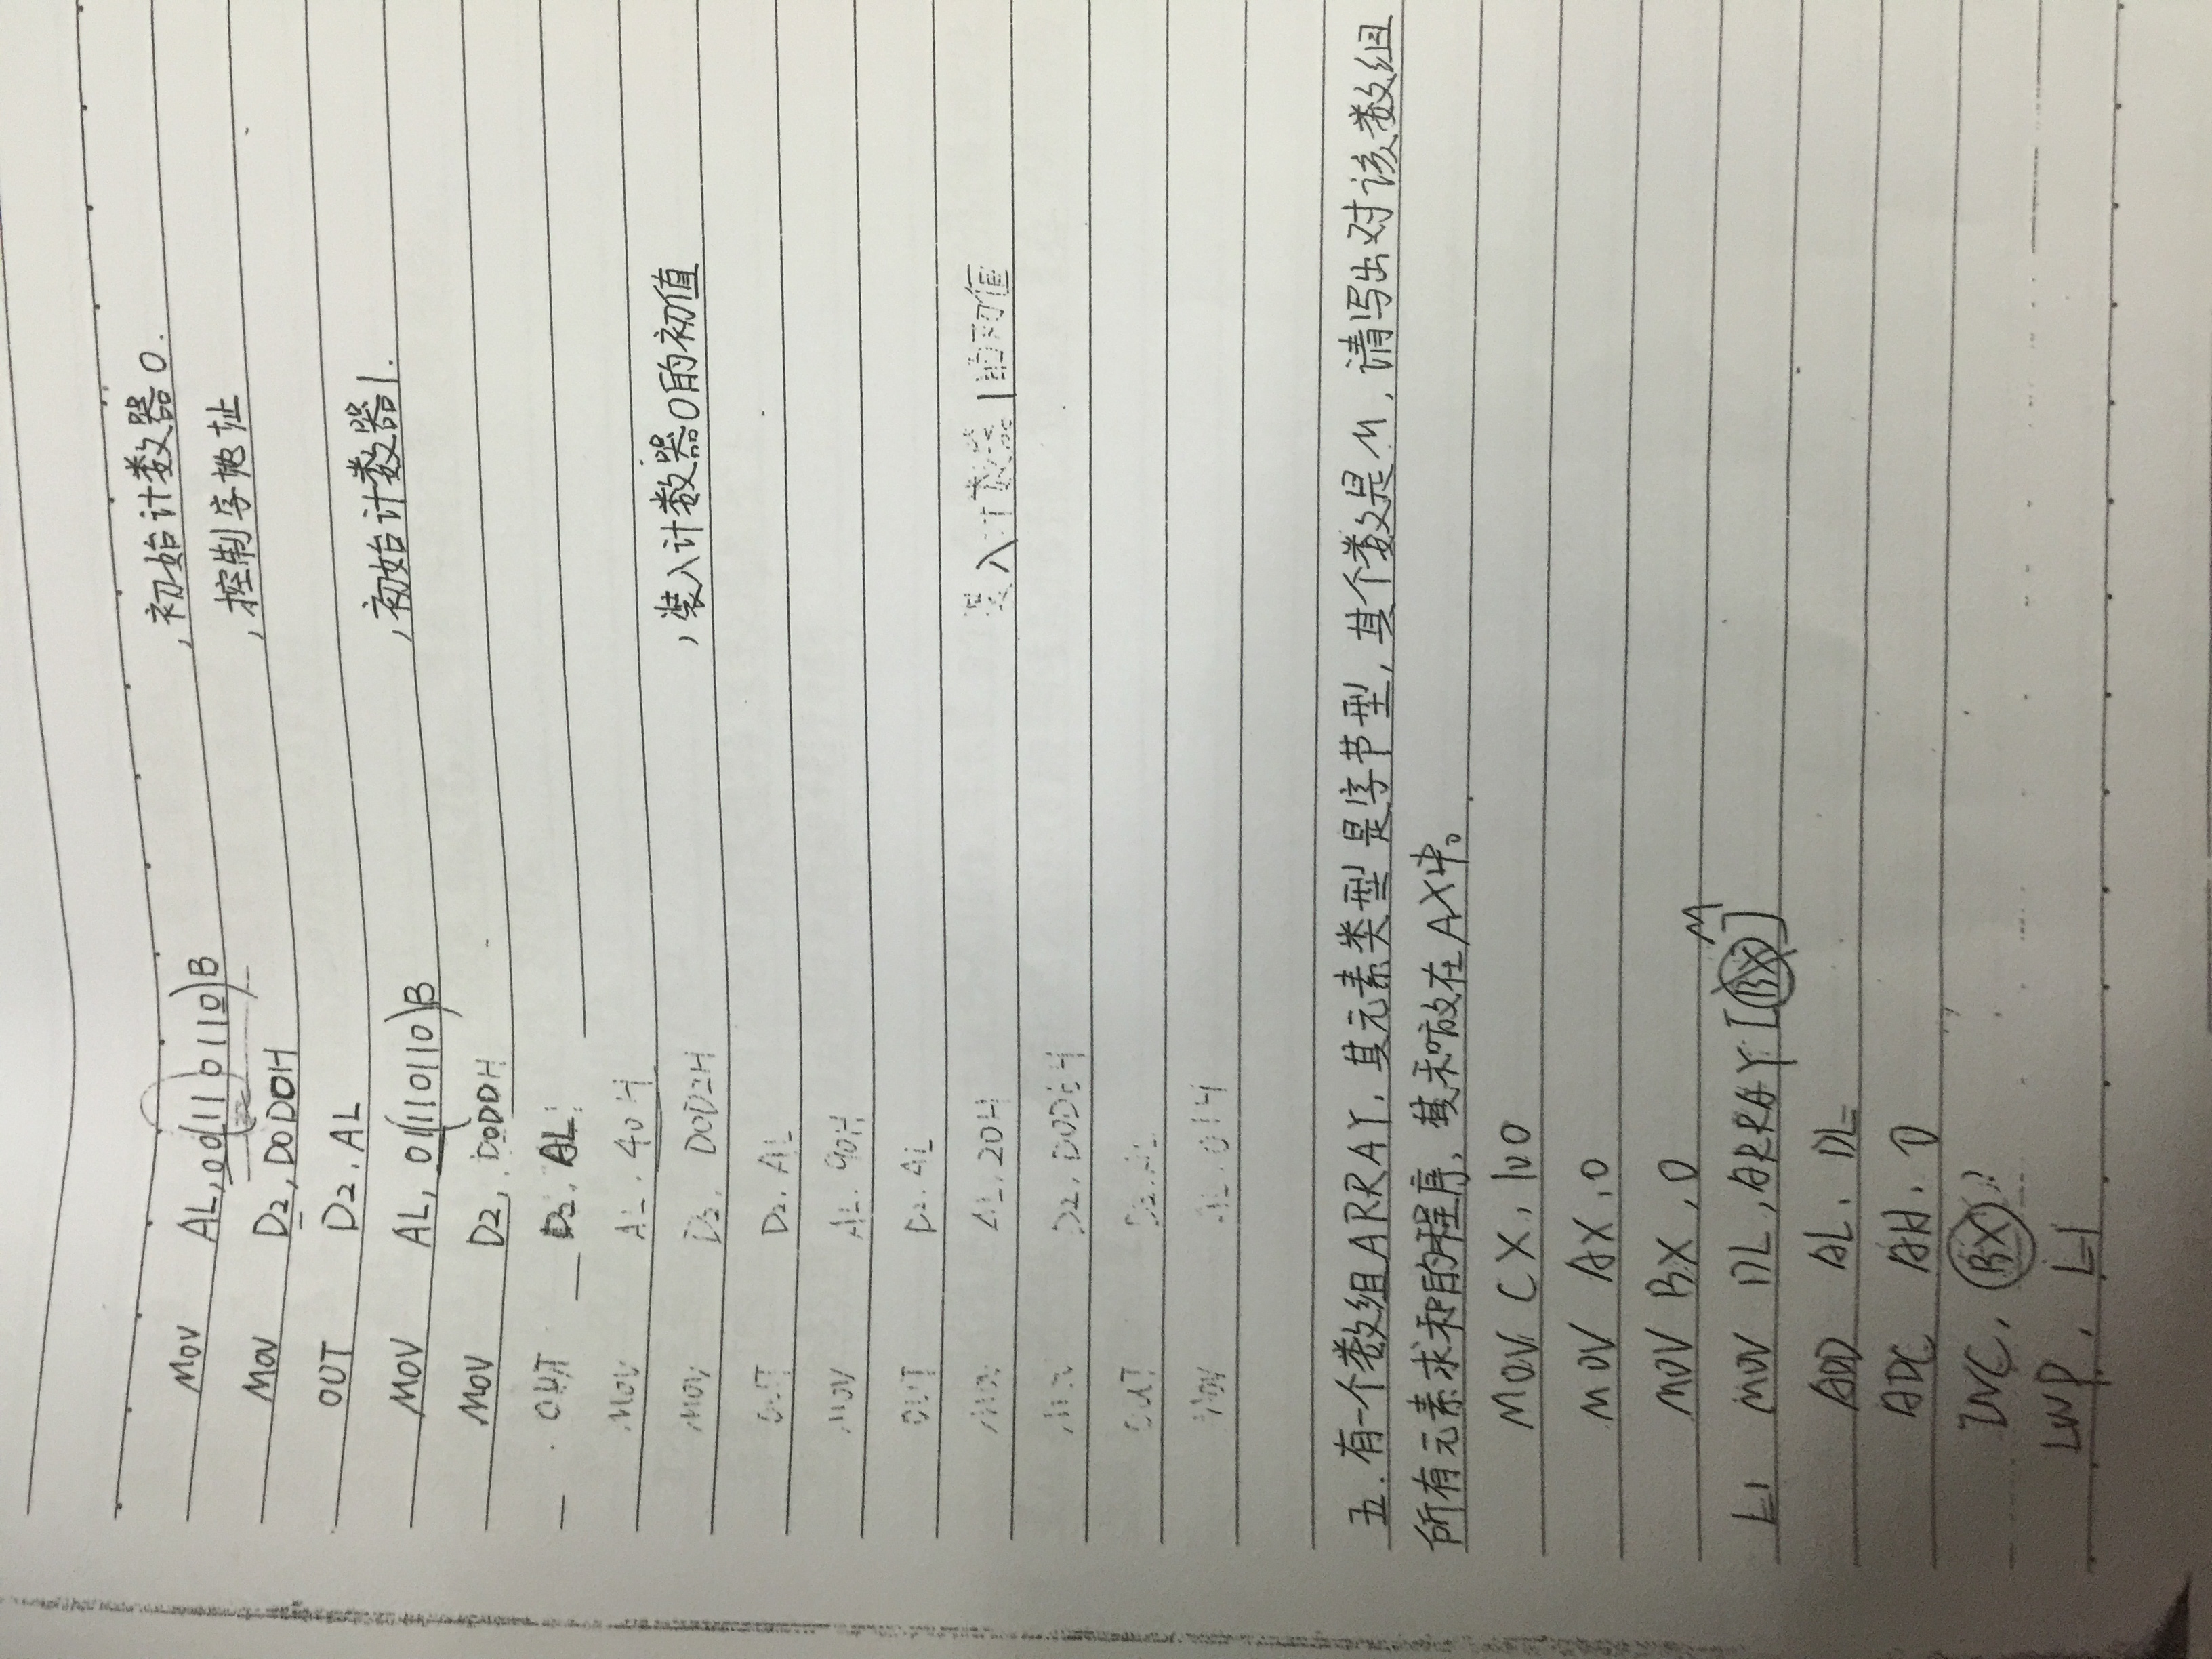 MOV AL, 00(110110)B ,初始计数器0.
MOV D2, D0D0H ,控制字地址
OUT D2, AL
MOV AL, 01(110110)B ,初始计数器1.
MOV D2, D0DDH
OUT D2, AL
MOV AL, 40H
MOV D2, D0D2H ,装入计数器0的初值
OUT D2, AL
MOV AL, 90H
OUT D2, AL
MOV AL, 20H 装入计数器1的初值
MOV D2, D0D6H
OUT D2, AL
MOV AL, 01H
五.有一个数组ARRAY,其元素类型是字节型,其个数是M,请写出对该数组
所有元素求和的程序,其和放在AX中。
MOV CX, 100
MOV AX, 0
MOV BX, 0
M
L1 MOV DL, ARRAY [BX]
ADD AL, DL
ADC AH, 0
INC, BX
LOOP, L1